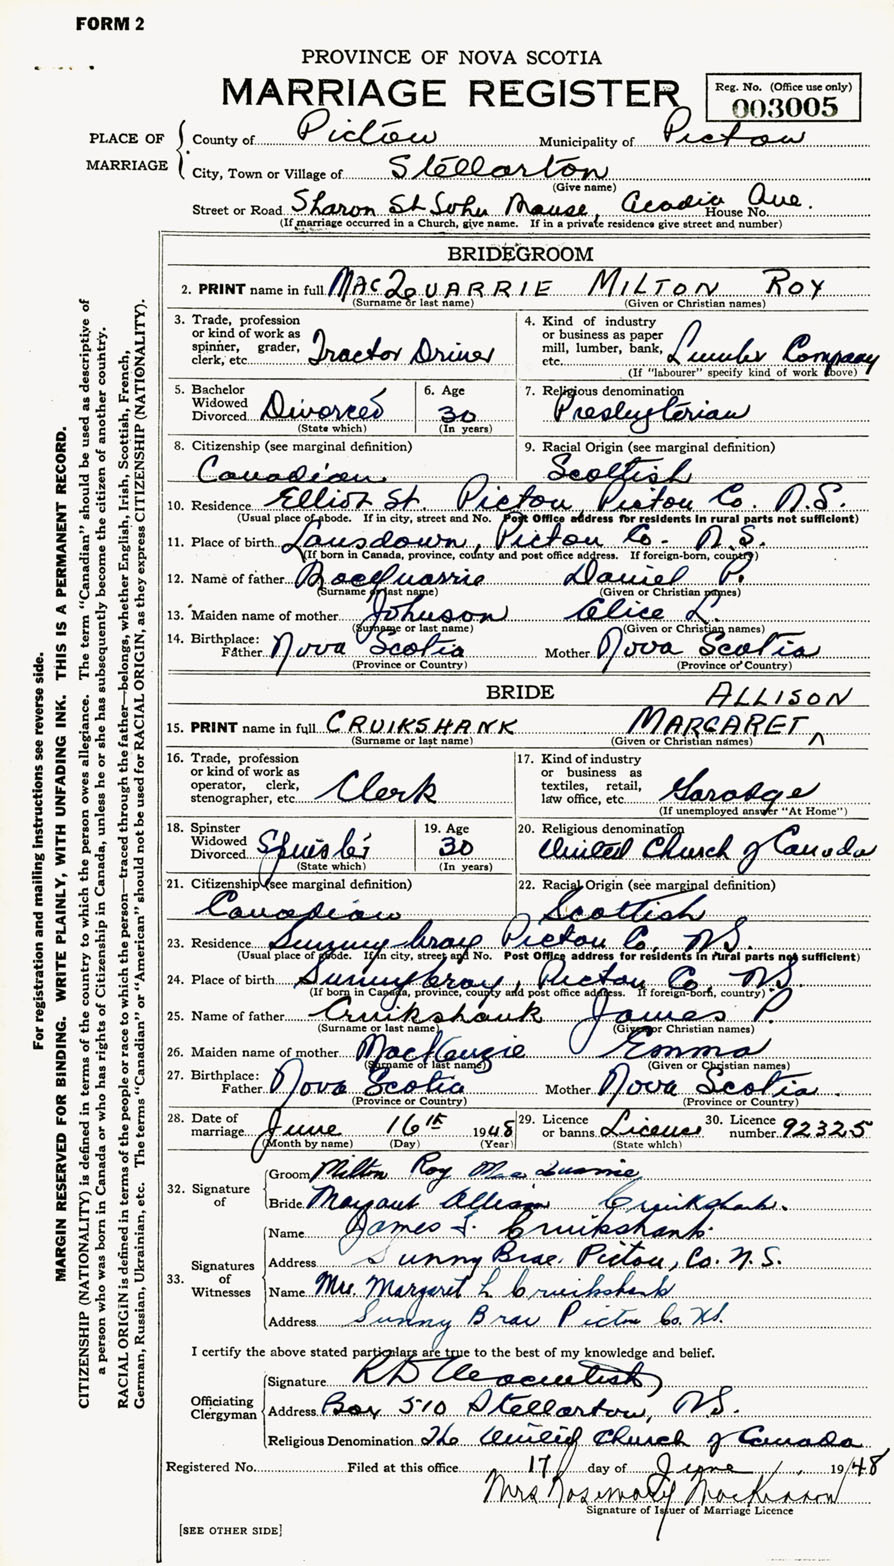 FORM 2
PROVINCE OF NOVA SCOTIA
MARRIAGE REGISTER
Reg. No. (Office use only)
003005
PLACE OF MARRIAGE
County of Pictou Municipality of Pictou
City, Town or Village of Stellarton
(Give name)
Street or Road Sharon St John Manse, Acadia Ave. House No.
(If marriage occurred in a Church, give name. If in a private residence give street and number)
BRIDEGROOM
2. PRINT name in full MACQUARRIE MILTON ROY
(Surname or last name) (Given or Christian names)
3. Trade, profession or kind of work as spinner, grader, clerk, etc. Tractor Driver
4. Kind of industry or business as paper mill, lumber, bank, etc. Lumber Company
(If "labourer" specify kind of work above)
5. Bachelor Widowed Divorced Divorced
(State which)
6. Age 30
(In years)
7. Religious denomination
Presbyterian
8. Citizenship (see marginal definition)
Canadian
9. Racial Origin (see marginal definition)
Scottish
10. Residence Elliot St. Pictou Pictou Co. N.S.
(Usual place of abode. If in city, street and No. Post Office address for residents in rural parts not sufficient)
11. Place of birth Lansdown, Pictou Co. N.S.
(If born in Canada, province, county and post office address. If foreign-born, country)
12. Name of father MacQuarrie Daniel P.
(Surname or last name) (Given or Christian names)
13. Maiden name of mother Johnson Alice L.
(Surname or last name) (Given or Christian names)
14. Birthplace: Father Nova Scotia Mother Nova Scotia
(Province or Country) (Province or Country)
BRIDE
ALLISON
15. PRINT name in full CRUIKSHANK MARGARET ^
(Surname or last name) (Given or Christian names)
16. Trade, profession or kind of work as operator, clerk, stenographer, etc. Clerk
17. Kind of industry or business as textiles, retail, law office, etc. Garadge
(If unemployed answer "At Home")
18. Spinster Widowed Divorced Spinster
(State which)
19. Age 30
(In years)
20. Religious denomination
United Church of Canada
21. Citizenship (see marginal definition)
Canadian
22. Racial Origin (see marginal definition)
Scottish
23. Residence Sunny bray Pictou Co, N.S.
(Usual place of abode. If in city, street and No. Post Office address for residents in rural parts not sufficient)
24. Place of birth Sunnybray, Pictou Co, N.S.
(If born in Canada, province, county and post office address. If foreign-born, country)
25. Name of father Cruikshank James P.
(Surname or last name) (Given or Christian names)
26. Maiden name of mother MacKenzie Emma
(Surname or last name) (Given or Christian names)
27. Birthplace: Father Nova Scotia Mother Nova Scotia
(Province or Country) (Province or Country)
28. Date of marriage June 16th 1948
(Month by name) (Day) (Year)
29. Licence or banns License
(State which)
30. Licence number 92325
32. Signature of
Groom Milton Roy MacQuarrie
Bride Margaret Allison Cruikshank.
33. Signatures of Witnesses
Name James F. Cruikshank
Address Sunny Brae Pictou, Co. N.S.
Name Mrs Margaret L Cruikshank
Address Sunny Brae Pictou Co. N.S.
I certify the above stated particulars are true to the best of my knowledge and belief.
Officiating Clergyman
Signature
Address Box 510 Stellarton, N.S.
Religious Denomination The United Church of Canada
Registered No. Filed at this office 17 day of June 1948
Mrs Rosemary MacKinnon
Signature of Issuer of Marriage Licence
[SEE OTHER SIDE]
For registration and mailing instructions see reverse side.
MARGIN RESERVED FOR BINDING. WRITE PLAINLY, WITH UNFADING INK. THIS IS A PERMANENT RECORD.
CITIZENSHIP (NATIONALITY) is defined in terms of the country to which the person owes allegiance. The term "Canadian" should be used as descriptive of
a person who was born in Canada or who has rights of Citizenship in Canada, unless he or she has subsequently become the citizen of another country.
RACIAL ORIGIN is defined in terms of the people or race to which the person—traced through the father—belongs, whether English, Irish, Scottish, French,
German, Russian, Ukrainian, etc. The terms "Canadian" or "American" should not be used for RACIAL ORIGIN, as they express CITIZENSHIP (NATIONALITY).